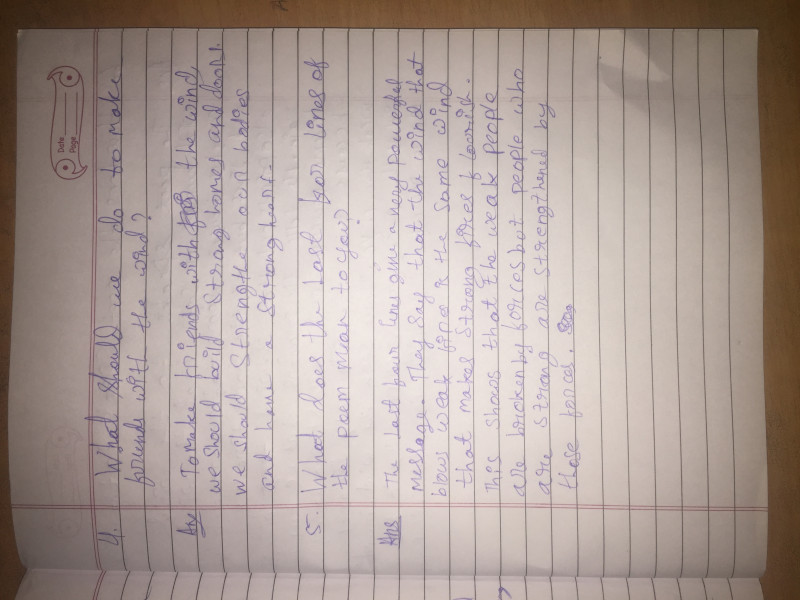 Date
Page
4. What should we do to make
friends with the wind?
Ans To make friends with the wind,
we should build strong homes and doors.
we should strengthe our bodies
and have a strong heart.
5. What does the last four lines of
the poem mean to you?
Ans The last four lines give a very powerful
message. They say that the wind that
blows weak fire is the same wind
that makes strong fires flourish.
This shows that the weak people
are broken by forces but people who
are strong are strengthened by
those forces.